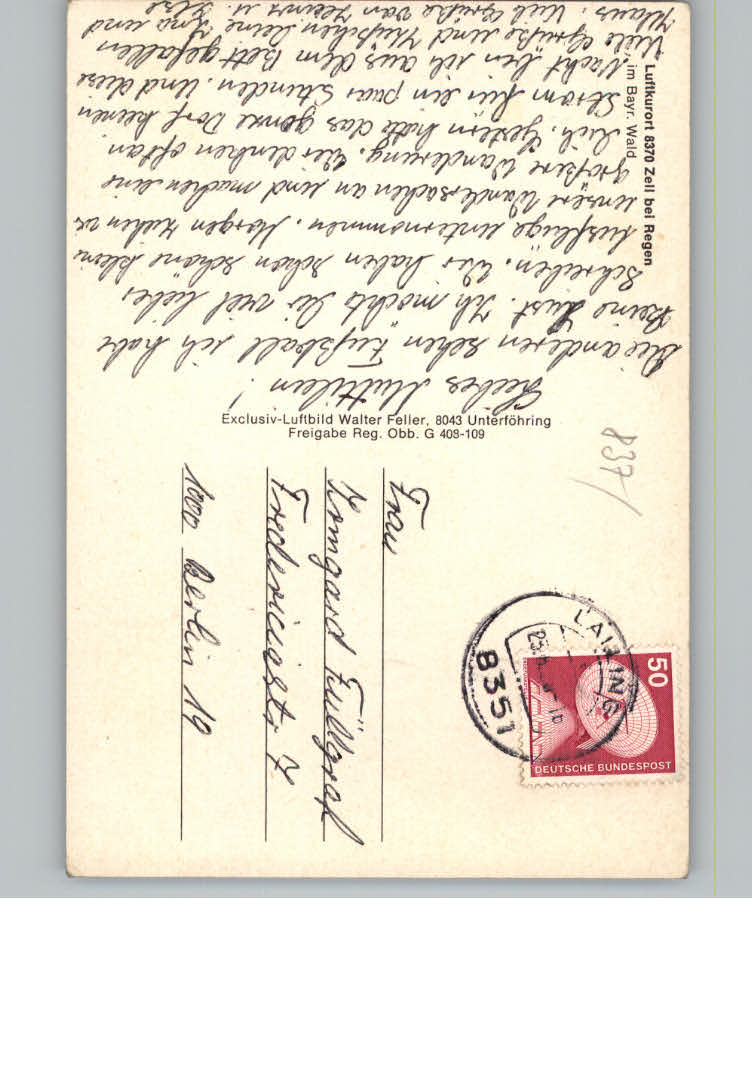 Luftkurort 8370 Zell bei Regen
im Bayr. Wald
Liebes Muttilein!
Die anderen sehen Fußball ich habe
keine Lust. Ich möchte Dir viel lieber
schreiben. Wir haben schon schöne kleine
Ausflüge unternommen. Morgen ziehen wir
unsere Wandersachen an und machen eine
größere Wanderung. Wir denken oft an
Dich. Gestern hatte das ganze Dorf keinen
Strom für ein paar Stunden. Und diese
Nacht bin ich aus dem Bett gefallen
Viele Grüße und Küßchen Deine Ina und
Klaus. Viele Grüße von Heinz u. Ilse
Exclusiv-Luftbild Walter Feller, 8043 Unterföhring
Freigabe Reg. Obb. G 408-109
837
Frau
Irmgard Füllgraf
Fredericiastr. 7
1000 Berlin 19
8351
LALLING
50
DEUTSCHE BUNDESPOST